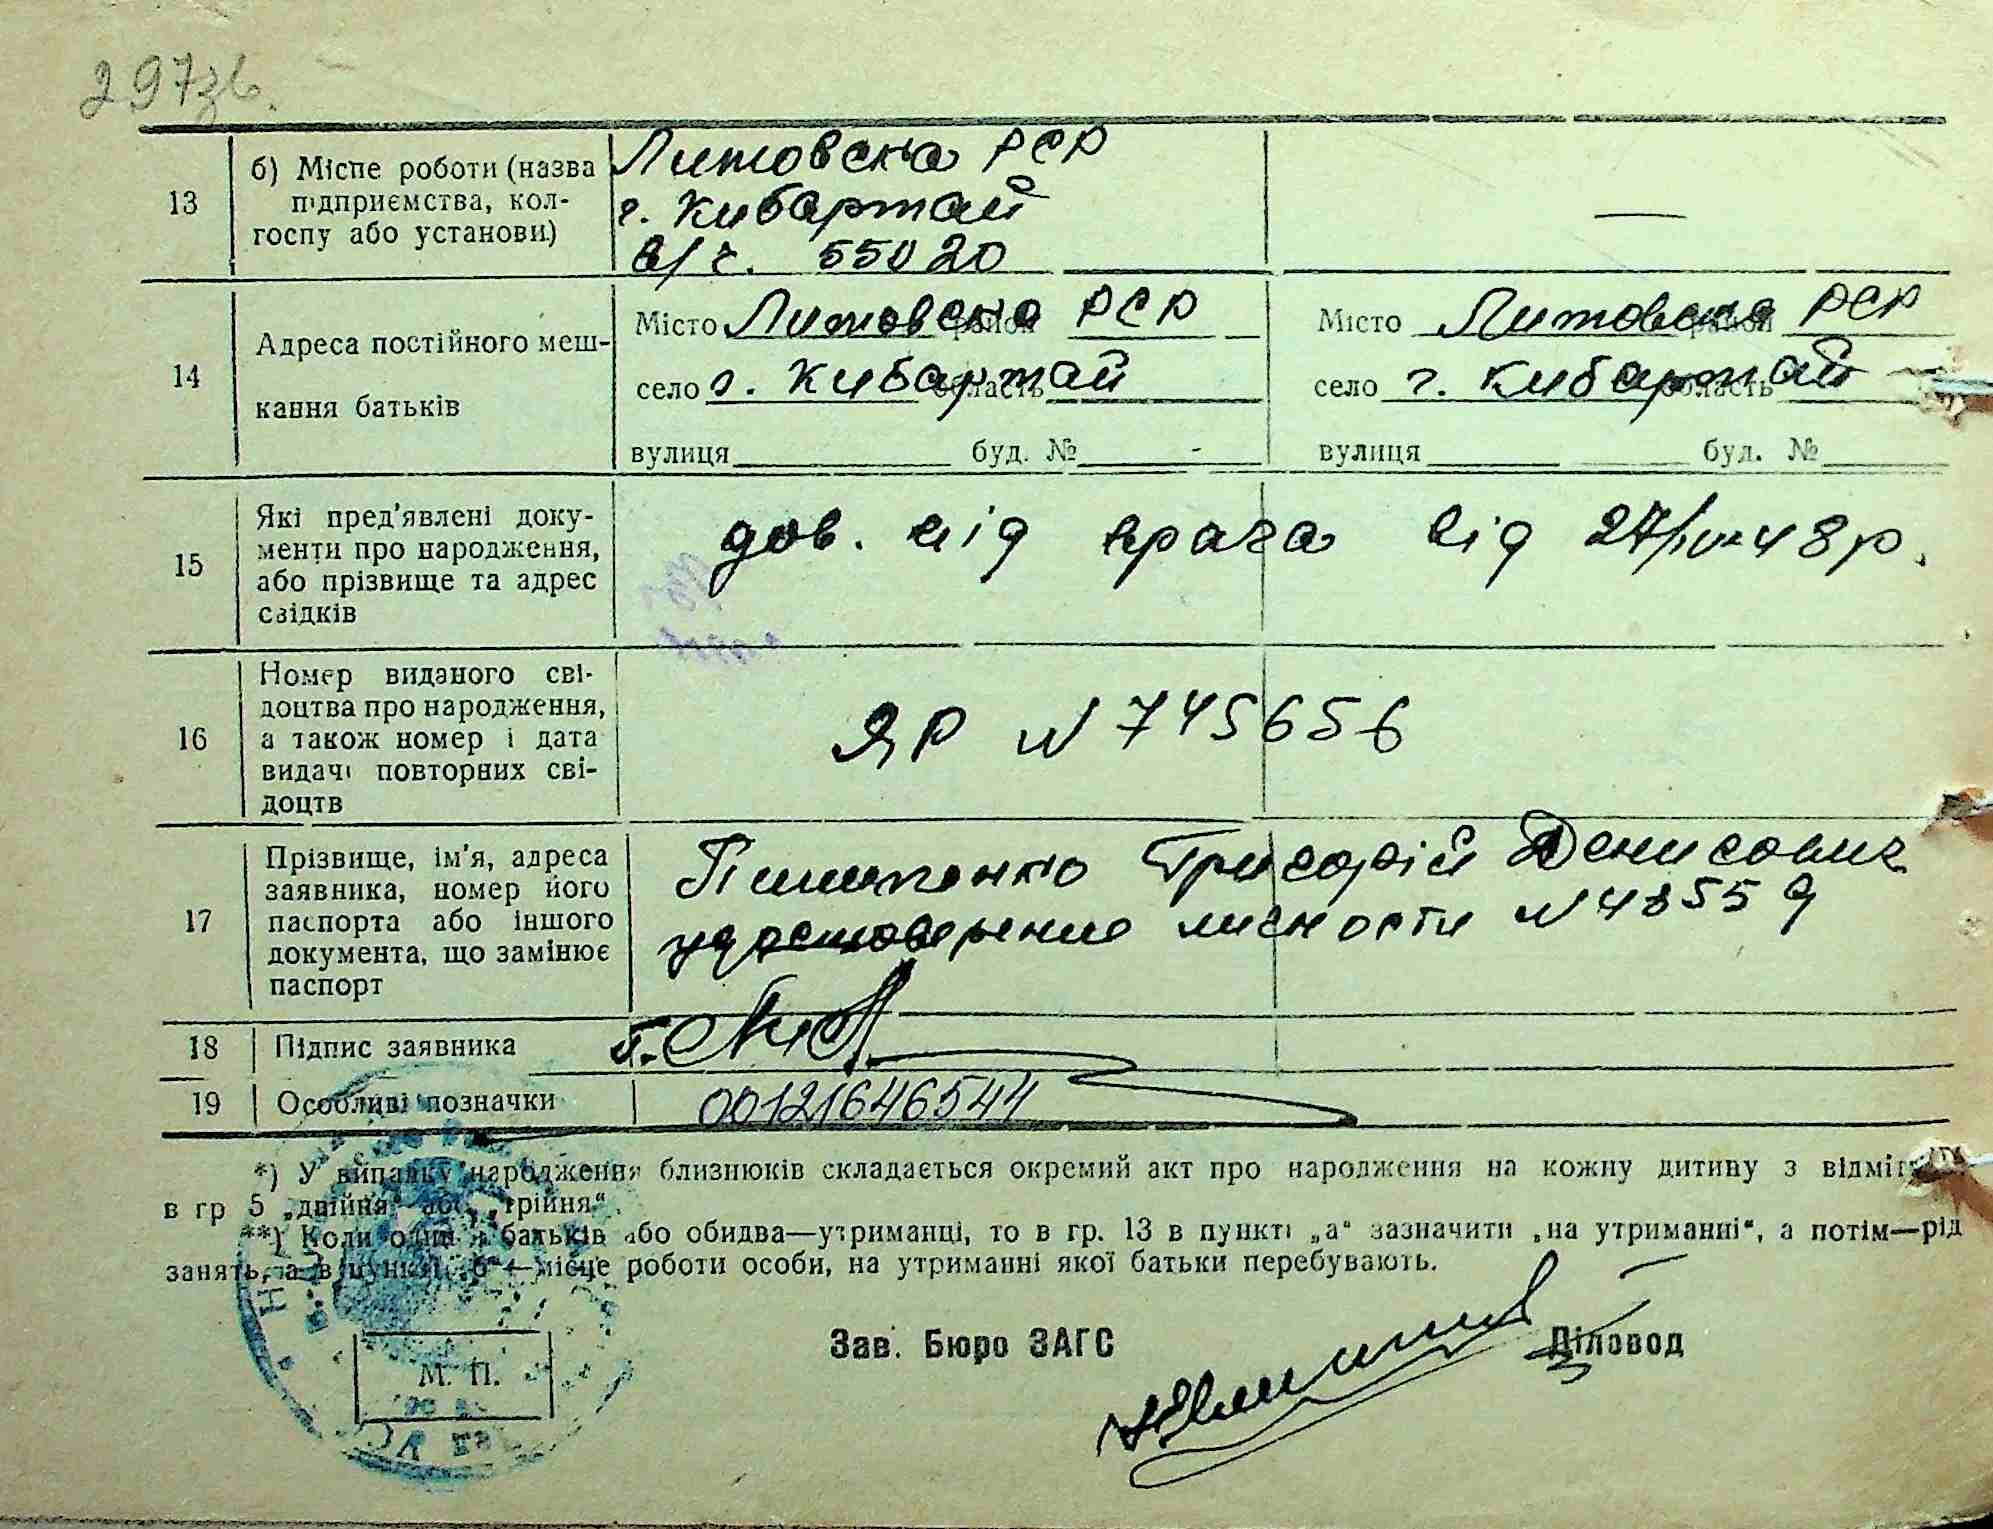 297зв.
13
б) Місце роботи (назва
підприємства, кол-
госпу або установи)
Литовска РСР
г. Кибартай
в/ч. 55020
—
14
Адреса постійного меш-
кання батьків
Місто Литовска район РСР
село г. Кибартай область
вулиця буд. № -
Місто Литовска район РСР
село г. Кибартай область
вулиця буд. №
15
Які пред'явлені доку-
менти про народження,
або прізвище та адрес
свідків
дов. від врача від 27/IV-48р.
16
Номер виданого сві-
доцтва про народження,
а також номер і дата
видачі повторних сві-
доцтв
ЯР N 745656
17
Прізвище, ім'я, адреса
заявника, номер його
паспорта або іншого
документа, що замінює
паспорт
Григорій Денисович
удостоверение личности N 48559
18
Підпис заявника
19
Особливі позначки
00121646544
*) У випадку народження близнюків складається окремий акт про народження на кожну дитину з відміт
в гр 5 „двійня“ або „трійня“.
**) Коли один з батьків або обидва—утриманці, то в гр. 13 в пункті „а“ зазначити „на утриманні“, а потім—рід
занять, а в пункті „б“—місце роботи особи, на утриманні якої батьки перебувають.
Зав. Бюро ЗАГС
Діловод
М. П.